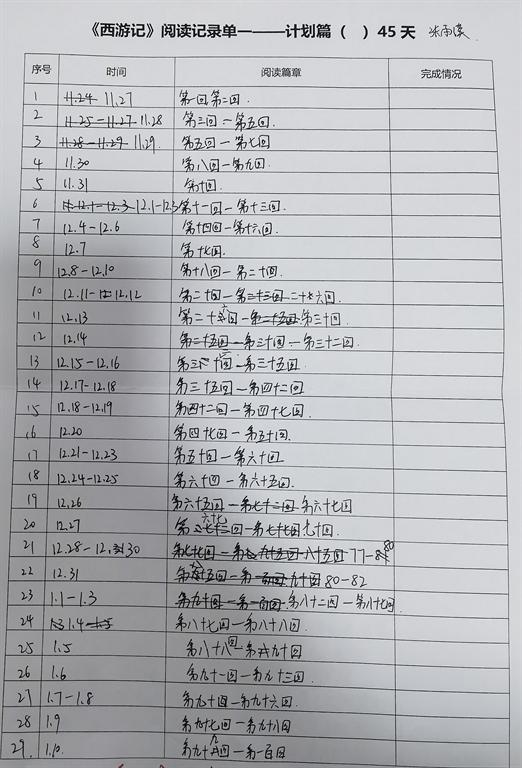 《西游记》阅读记录单一——计划篇（ ）45天
序号 时间 阅读篇章 完成情况
1 11.24 11.27 第一回第二回.
2 11.25-11.27 11.28 第三回-第五回.
3 11.28-11.29 11.29. 第五回-第七回
4 11.30 第八回-第九回.
5 11.31 第十回.
6 12.1-12.3 12.1-12.3 第十一回-第十三回.
7 12.4-12.6 第十四回-第十六回.
8 12.7 第十七回.
9 12.8-12.10 第十八回-第二十回.
10 12.11-12.12 第二十回-第二十三回 二十六回.
11 12.13 第二十六回-第二十五回 第三十回.
12 12.14 第二十五回-第三十回-第三十二回.
13 12.15-12.16 第三十二回-第三十五回.
14 12.17-12.18 第三十五回-第四十二回
15 12.18-12.19 第四十二回-第四十七回.
16 12.20 第四十七回-第五十回.
17 12.21-12.23 第五十回-第六十回.
18 12.24-12.25 第六十回-第六十五回.
19 12.26 第六十五回-第七十二回 第六十七回
20 12.27 第六十七回-第七十七回
21 12.28-12.30 第七十七回-八十五回 77-80
22 12.31 80-82
23 1.1-1.3 第九十回-第一百回 第八十二回-第八十七回
24 1.4 第八十七回-第八十八回.
25 1.5 第八十八回-第九十回
26 1.6 第九十一回-第九十三回.
27 1.7-1.8 第九十四回-第九十六回.
28 1.9 第九十七回-第九十八回
29. 1.10. 第九十八回-第一百回